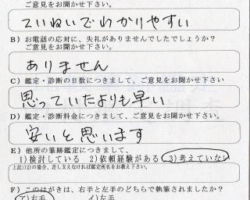 ご意見をお聞かせ下さい。
ていねいでわかりやすい
B）お電話の応対に、失礼がありませんでしたでしょうか？
ご意見をお聞かせ下さい。
ありません
C）鑑定・診断の日数につきまして、ご意見をお聞かせ下さい
思っていたよりも早い
D）鑑定・診断料金につきまして、ご意見をお聞かせ下さい。
安いと思います
E）他所の筆跡鑑定につきまして、
1）検討している 2）依頼経験がある 3）考えていない
F）このはがきは、右手と左手のどちらで執筆されましたか？
1）右手 イ）左手